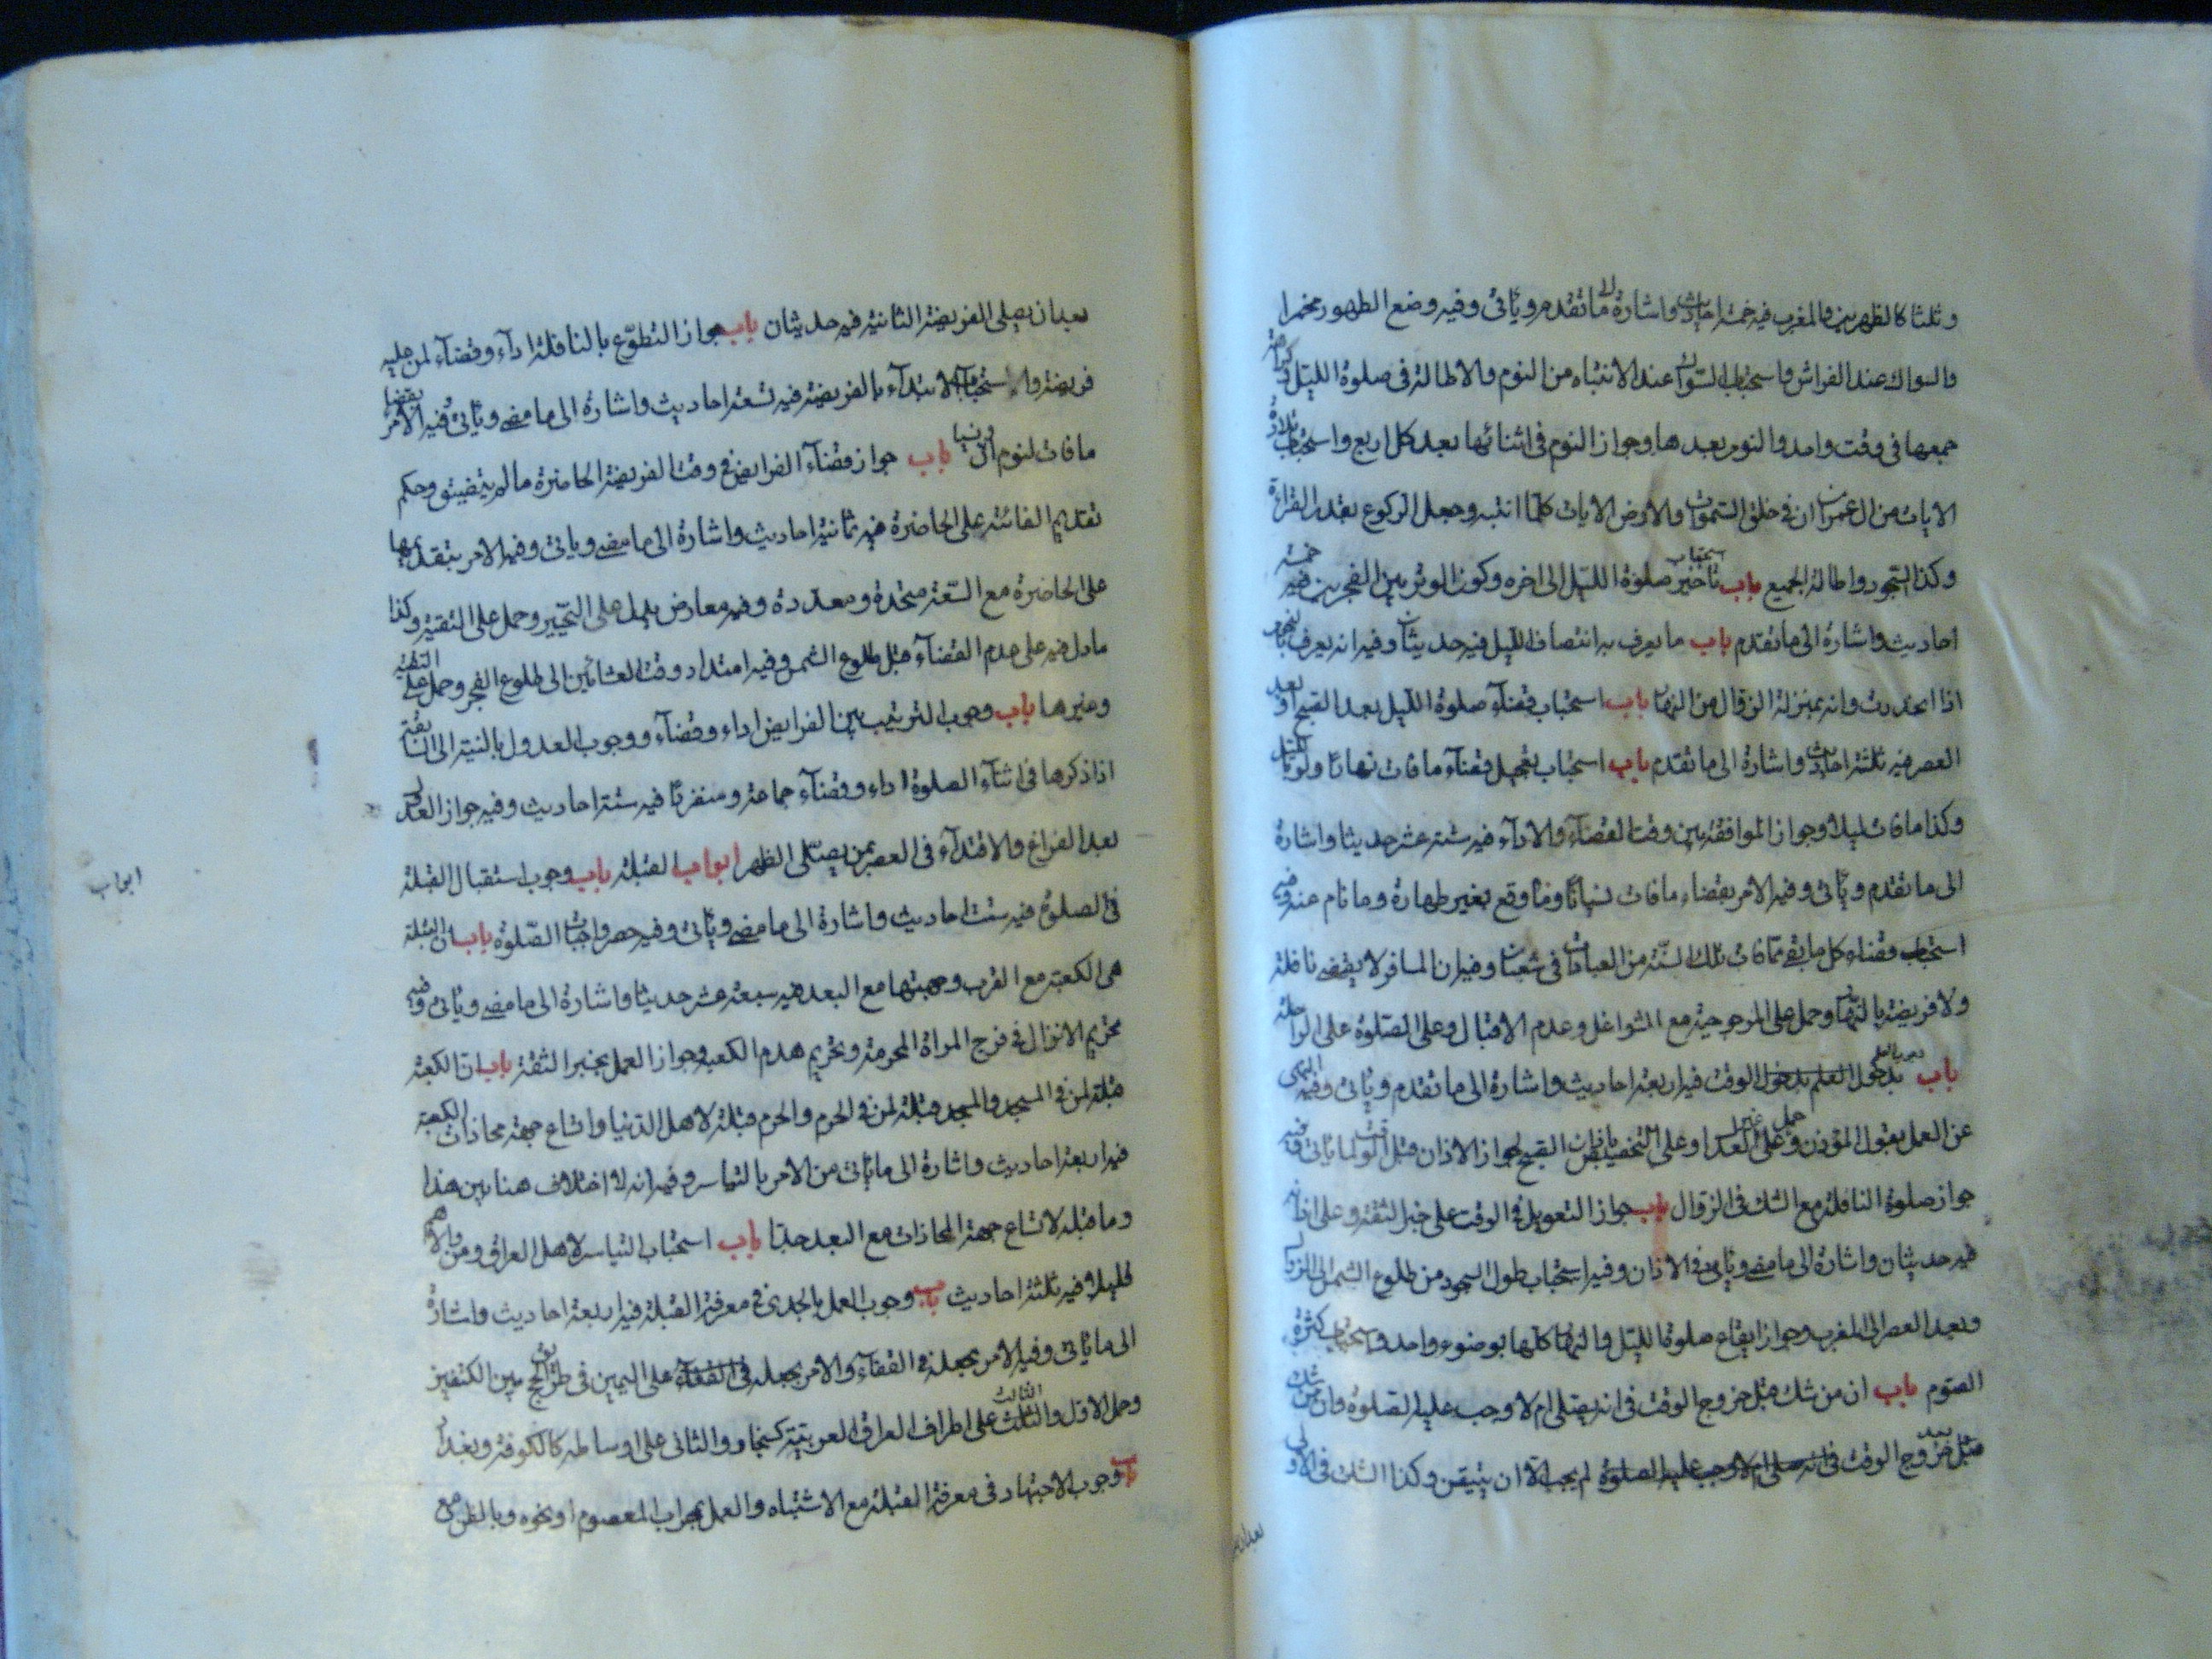 وثلثا كالظهرين والمغرب فيه خمسة احاديث واشارة الى ما تقدم وياتى وفيه وضع الطهور مخمرا
والسواك عند الفراش واستحباب السواك عند الانتباه من النوم والاطالة فى صلوة الليل كراهة
جمعها فى وقت واحد والنوم بعدها وجواز النوم فى اثنائها بعد كل اربع واستحباب تلاوة
الايات من ال عمران ان فى خلق السموات والارض الايات كلما انتبه وجعل الركوع بقدر القراءة
وكذا السجود واطالة الجميع باب استحباب تاخير صلوة الليل الى اخره وكون الوتر بين الفجرين فيه خمسة
احاديث واشارة الى ما تقدم باب ما يعرف به انتصاف الليل فيه حديثان وفيه انه يعرف بالنجوم
اذا انحدرت وانه بمنزلة الزوال من النهار باب استحباب قضاء صلوة الليل بعد الصبح او بعد
العصر فيه ثلثة احاديث واشارة الى ما تقدم باب استحباب تعجيل قضاء ما فات نهارا ولو بالليل
وكذا ما فات ليلا وجواز الموافقة بين وقت القضاء والاداء فيه ستة عشر حديثا واشارة
الى ما تقدم وياتى وفيه الامر بقضاء ما فات نسيانا وما وقع بغير طهارة وما نام عنه وفيه
استحباب قضاء كل ما بقى مما فات تلك السنة من العبادات فى شعبان وفيه ان المسافر لا يقضى نافلة
ولا فريضة بالنهار وحمل على المرجوحية مع الشواغل وعدم الاقبال وعلى الصلوة على الراحلة
باب وجوب العلم بدخول الوقت فيه اربعة احاديث واشارة الى ما تقدم وياتى وفيه النهى
عن العمل بقول المؤذن وحمل على غير العدل وعلى التخصيص باذان الصبح لجواز الاذان قبل الوقت لما ياتى وفيه
جواز صلوة النافلة مع الشك فى الزوال باب جواز التعويل فى الوقت على خبر الثقة وعلى اذانه
فيه حديثان واشارة الى ما مضى وياتى فى الاذان وفيه استحباب طول السجود من طلوع الشمس الى الزوال
وبعد العصر الى المغرب وجواز ايقاع صلوة الليل والنهار كلها بوضوء واحد واستحباب كثرة
الصوم باب ان من شك قبل خروج الوقت فى انه يصلى ام لا وجب عليه الصلوة وان شك
بعد خروج الوقت فى انه صلى ام لا وجب عليه الصلوة لم يجب الا ان يتيقن وكذا الشك فى الاولى
بعد ان يصلى الفريضة الثانية فيه حديثان باب جواز التطوع بالنافلة اداء وقضاء لمن عليه
فريضة واستحباب الابتداء بالفريضة فيه تسعة احاديث واشارة الى ما مضى وياتى وفيه الامر بقضاء
ما فات لنوم او نسيان باب جواز قضاء الفرايض فى وقت الفريضة الحاضرة ما لم يتضيق وحكم
تقديم الفائتة على الحاضرة فيه ثمانية احاديث واشارة الى ما مضى وياتى وفيه الامر بتقديمها
على الحاضرة مع السعة متحدة ومعددة وفيه معارض يدل على التخيير وحمل على التقية وكذا
ما دل فيه على عدم القضاء قبل طلوع الشمس وفيه امتداد وقت العشائين الى طلوع الفجر وحمل على التقية
وغيرها باب وجوب الترتيب بين الفرايض اداء وقضاء ووجوب العدول بالنية الى السابقة
اذا ذكرها فى اثناء الصلوة اداء وقضاء جماعة ومنفردا فيه ستة احاديث وفيه جواز العدول
بعد الفراغ والاقتداء فى العصر بمن يصلى الظهر ابواب القبلة باب وجوب استقبال القبلة
فى الصلوة فيه ست احاديث واشارة الى ما مضى وياتى وفيه حصر واجبات الصلوة باب ان القبلة
هى الكعبة مع القرب وجهتها مع البعد فيه سبعة عشر حديثا واشارة الى ما مضى وياتى وفيه
تحريم الانزال فى فرج المراة المحرمة وتحريم هدم الكعبة وجواز العمل بخبر الثقة باب ان الكعبة
قبلة لمن فى المسجد والمسجد قبلة لمن فى الحرم والحرم قبلة لاهل الدنيا واتساع جهة محاذات الكعبة
فيه اربعة احاديث واشارة الى ما ياتى من الامر بالتياسر وفيه انه لا اختلاف هنا بين هذا
وما قبله لاتساع جهة المحاذات مع البعد جدا باب استحباب التياسر لاهل العراق ومن والاهم
قليلا فيه ثلثة احاديث باب وجوب العمل بالجدى فى معرفة القبلة فيه اربعة احاديث واشارة
الى ما ياتى وفيه الامر بجعله فى القفاء والامر بجعله على اليمين فى طريق الحج بين الكتفين
وحمل الاول والثالث على اطراف العراق الغربية كسنجار والثانى على اوساطه كالكوفة وبغداد
باب وجوب الاجتهاد فى معرفة القبلة مع الاشتباه والعمل بمحراب المعصوم او نحوه وبالظن مع
ابواب